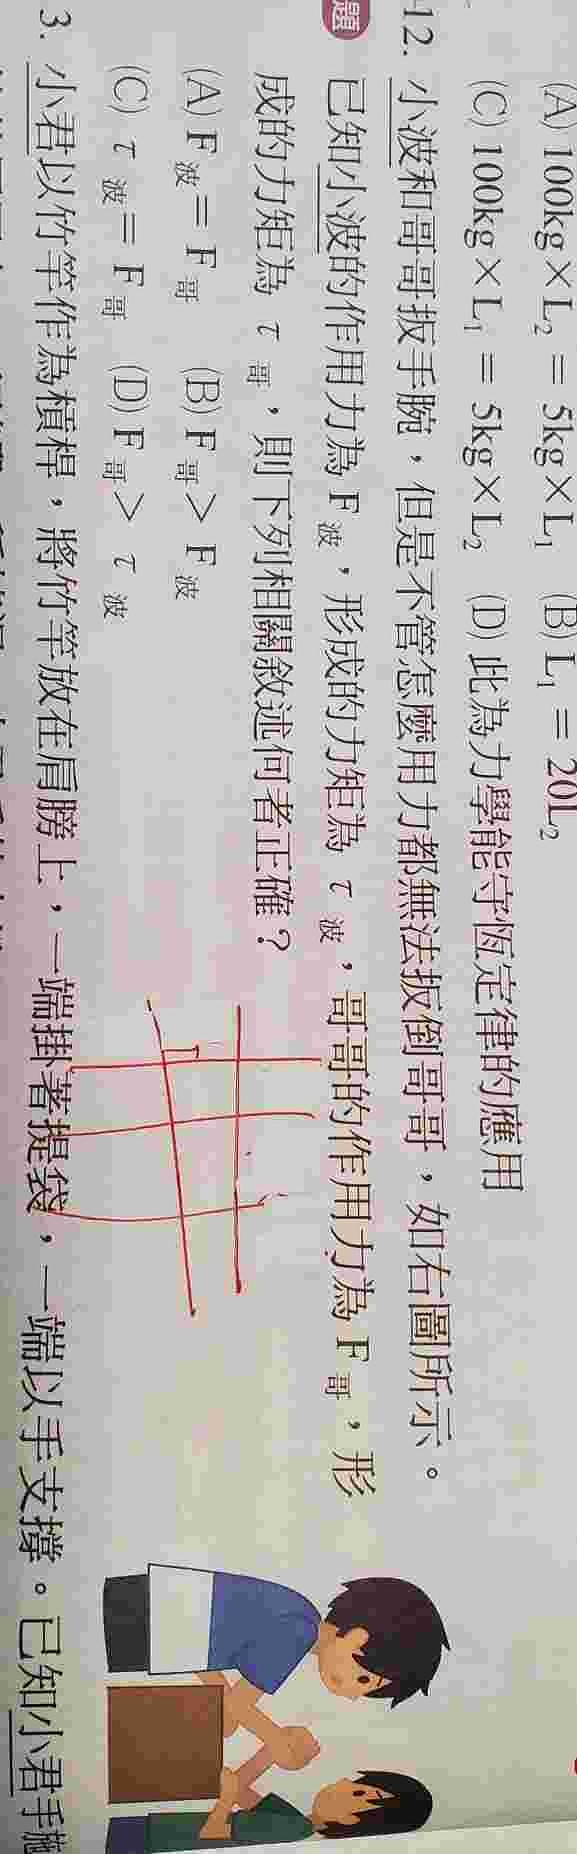 (A) 100kg×L₂ = 5kg×L₁ (B) L₁ = 20L₂
(C) 100kg×L₁ = 5kg×L₂ (D) 此為力學能守恆定律的應用
12. 小波和哥哥扳手腕，但是不管怎麼用力都無法扳倒哥哥，如右圖所示。
題 已知小波的作用力為 F波，形成的力矩為 τ波，哥哥的作用力為 F哥，形
成的力矩為 τ哥，則下列相關敘述何者正確？
(A) F波 = F哥 (B) F哥 > F波
(C) τ波 = F哥 (D) F哥 > τ波
3. 小君以竹竿作為槓桿，將竹竿放在肩膀上，一端掛著提袋，一端以手支撐。已知小君手施